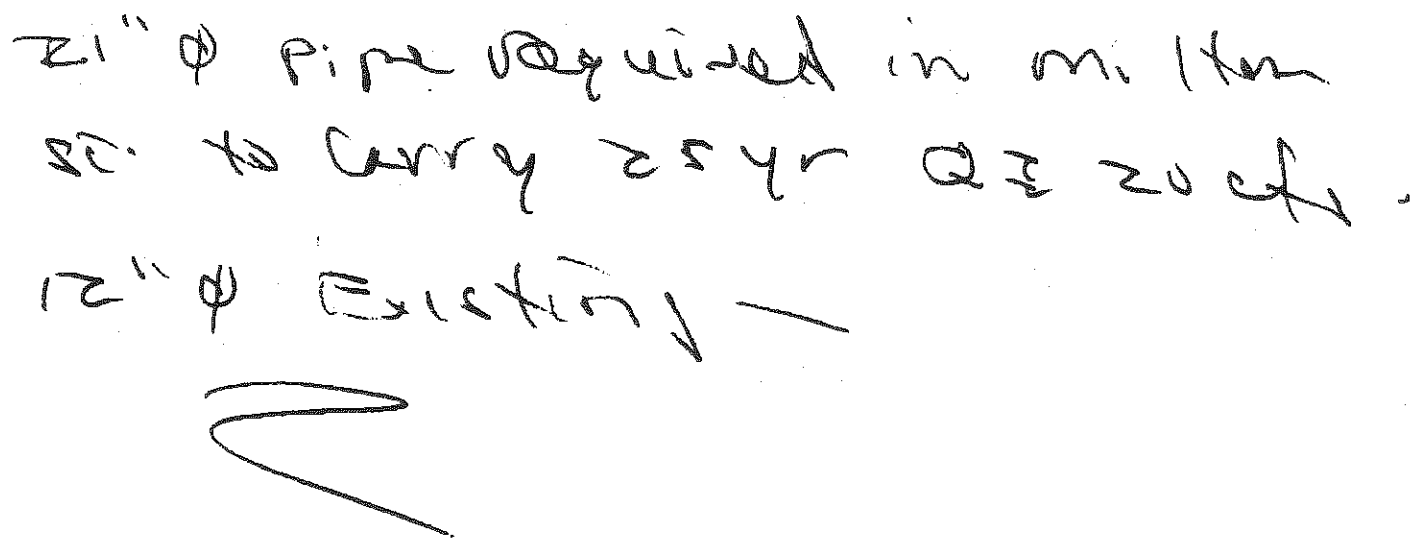 21" ϕ pipe required in Milton
St. to carry 25 yr Q = 20 cfs.
12" ϕ Existing —